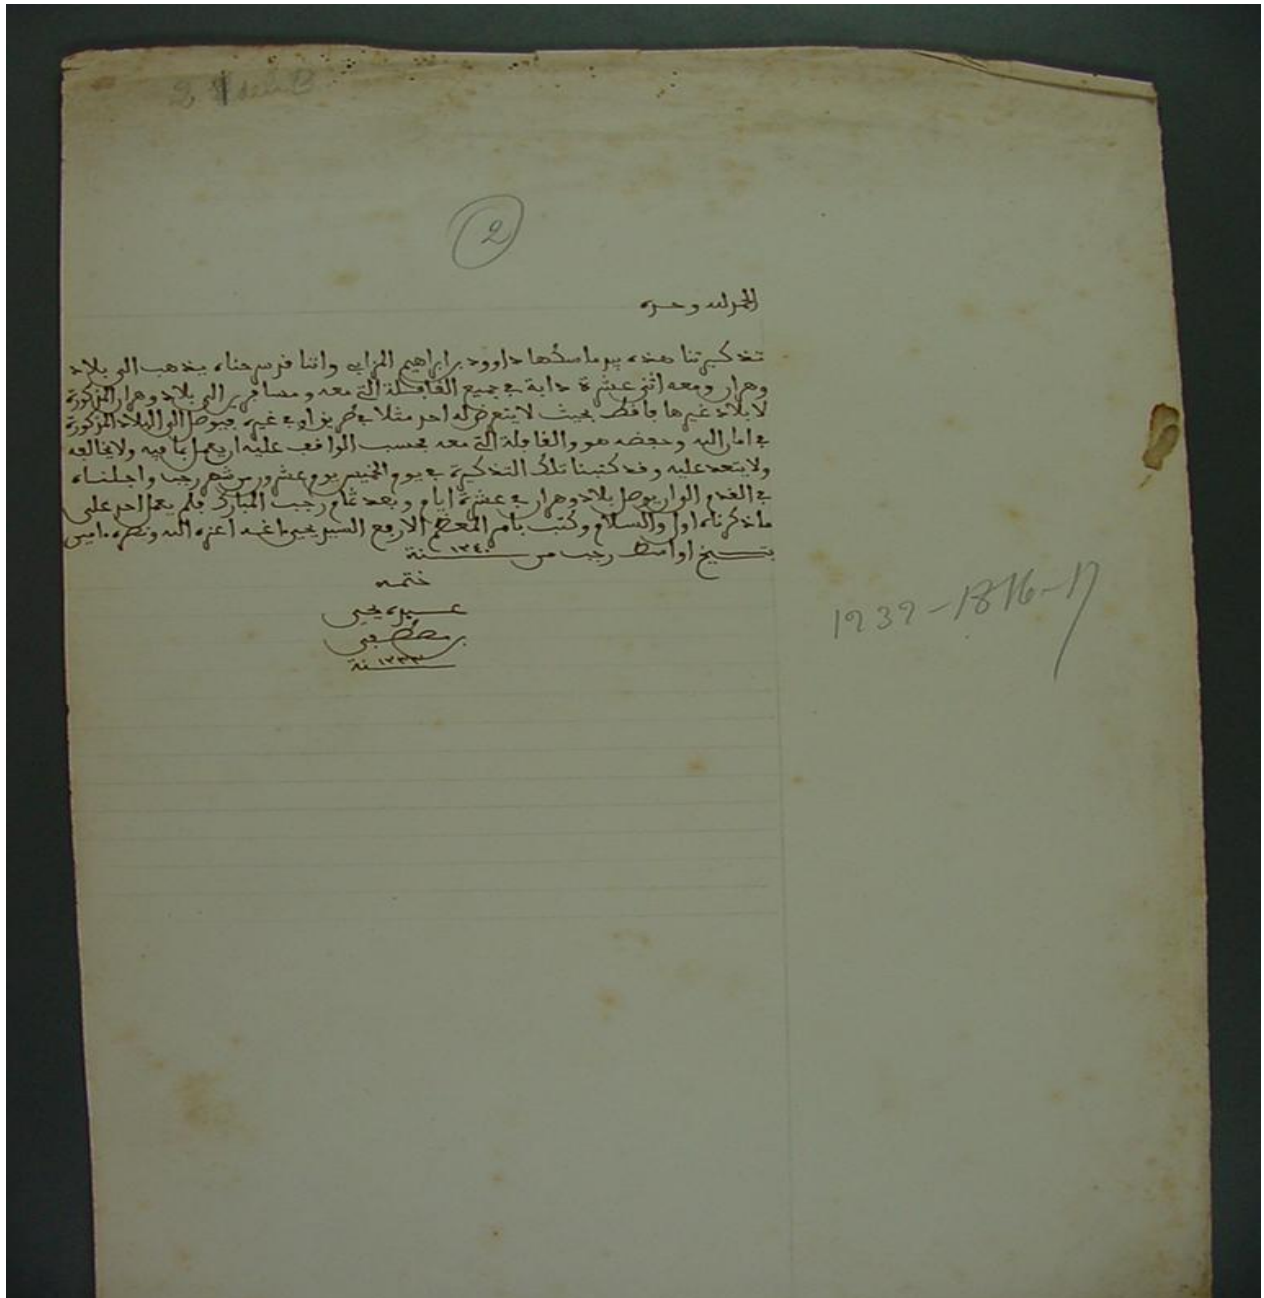 2
الحمد لله وحده
تذكرتنا هذه بيد ماسكها داوود بن ابراهيم المزابي واننا قد سرحناه يذهب الى بلاد
وهران ومعه اثنى عشرة دابة في جميع القافلة التي معه ومسافرين الى بلاد وهران المذكورة
لا بلاد غيرها فافط بحيث لا يتعرض له احد مثلا في طريق او في غيره فيوصل الى البلاد المذكورة
في امان الله وحفضه هو والقافلة التي معه بحسب الواقف عليه ان يعمل بما فيه ولا يخالفه
ولا يتعد عليه وقد كتبنا تلك التذكرة في يوم الخميس يوم عشرون من شهر رجب واجلناه
في القدم الى ان يوصل بلاد وهران في عشرة ايام وبعد تمام رجب المبارك فلم يعمل احد على
ما ذكرناه اول والسلام وكتب بامر المعظم الارفع السيد يحيى ءاغه اعزه الله ونصره ءامين
بتاريخ اواسط رجب من سنة ١٢٤٠
ختمه
عبده يحيى
بن مصطفى
سنة ١٢٣٣
1232-1816-17